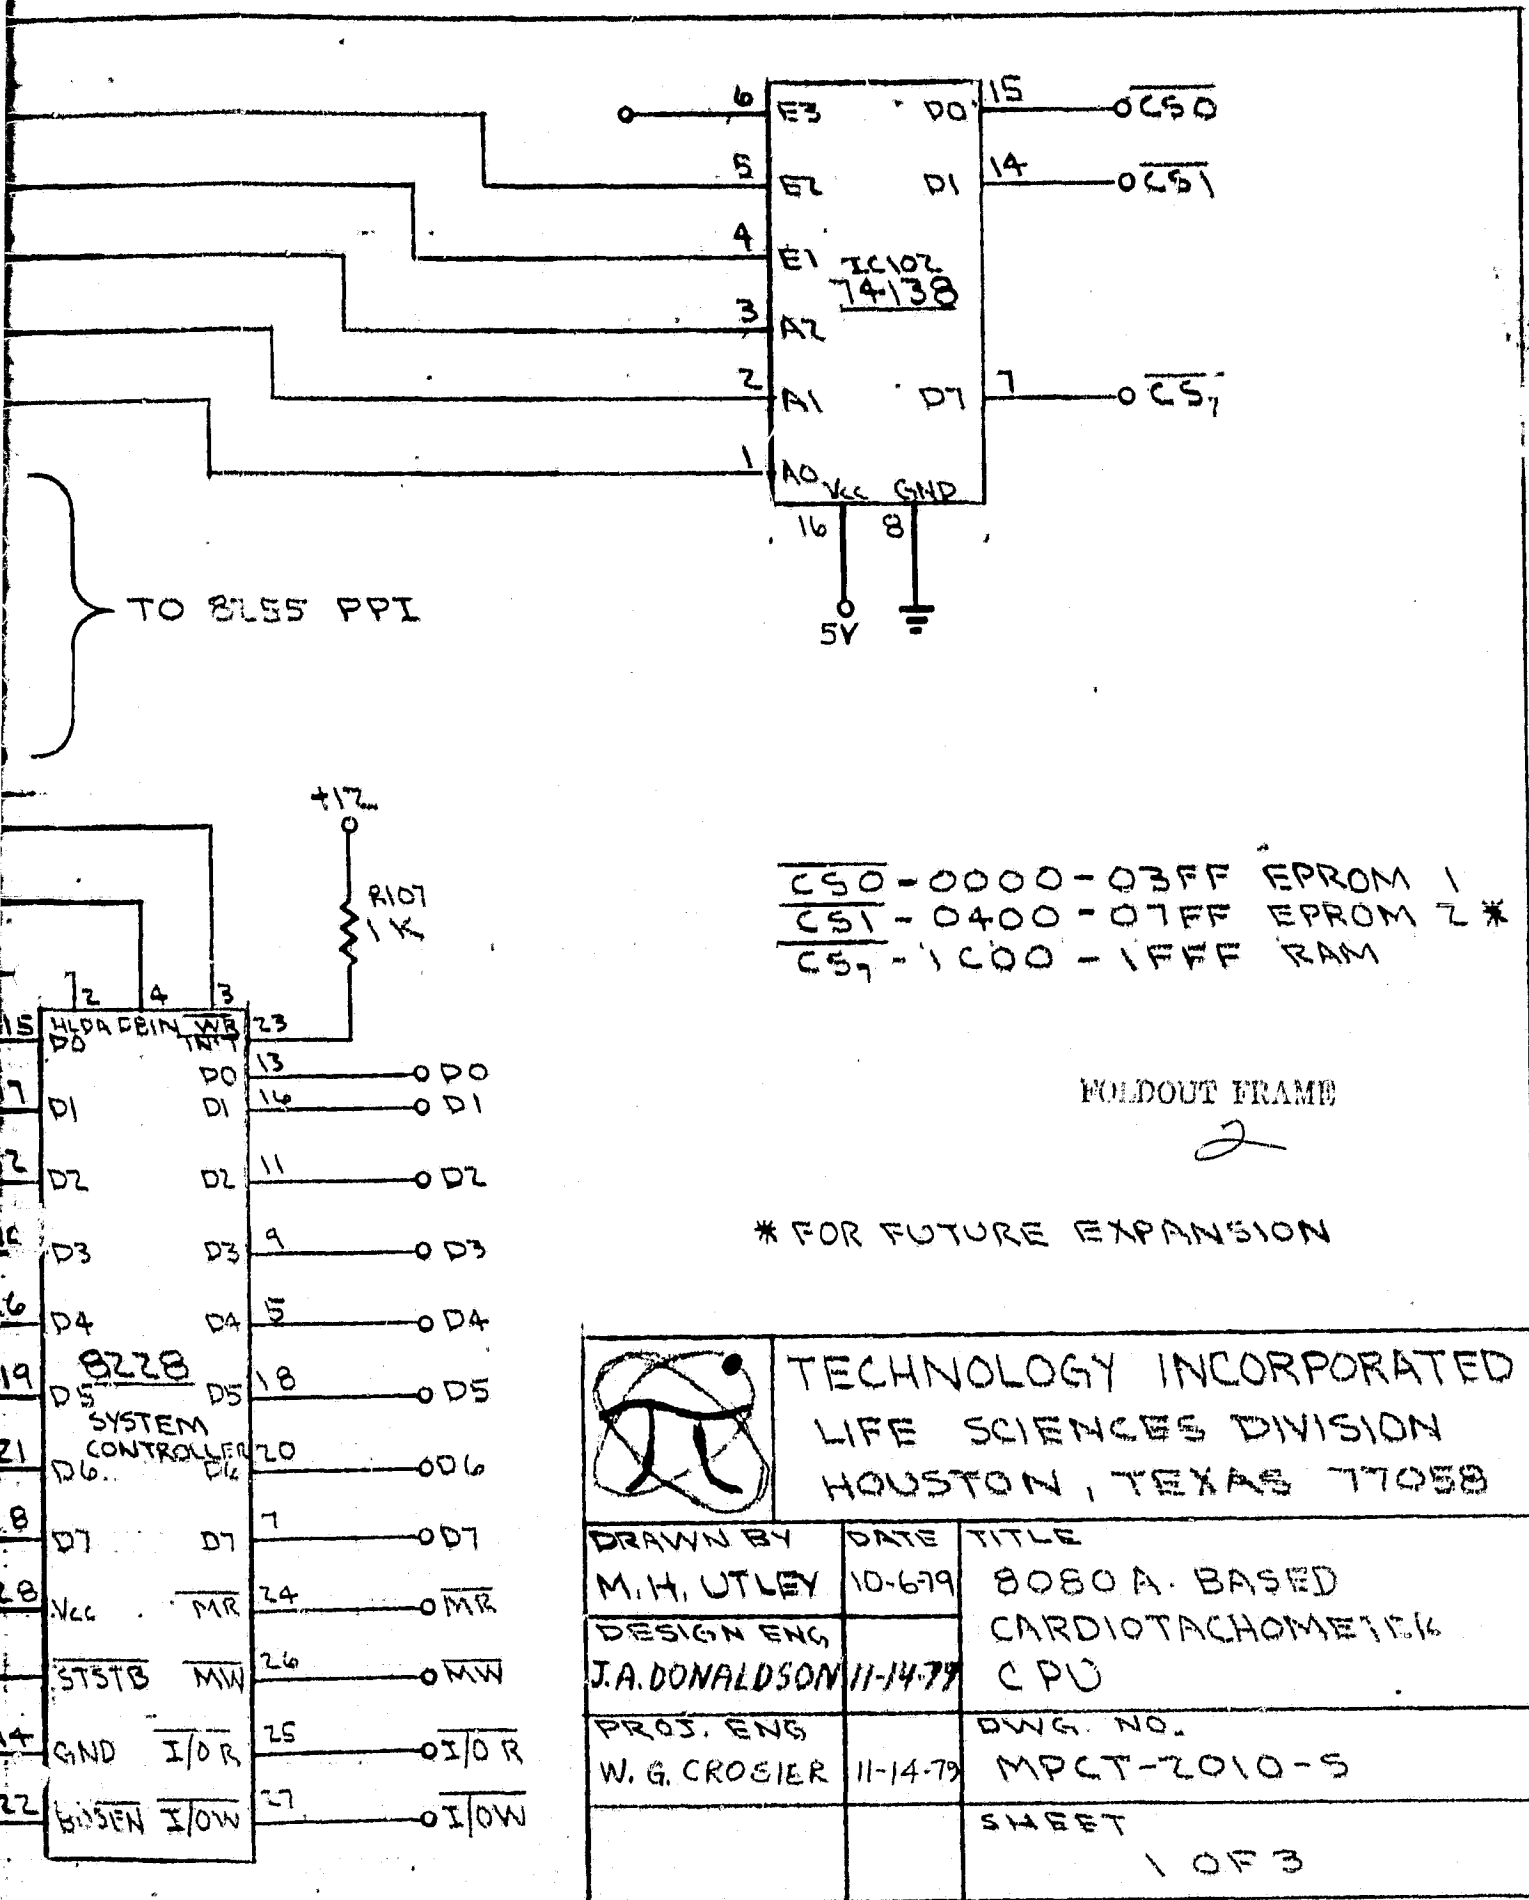 6 E3 D0 15 CS0
5 E2 D1 14 CS1
4 E1 IC102
74138
3 A2
2 A1 D7 7 CS7
1 A0 Vcc GND
16 8
5V
TO 8255 PPI
+12
R107
1K
CS0 - 0000 - 03FF EPROM 1
CS1 - 0400 - 07FF EPROM 2 *
CS7 - 1C00 - 1FFF RAM
2 4 3
15 HLDA DBIN WR 23
D0 INT
D0 13 D0
7 D1 D1 16 D1
2 D2 D2 11 D2
D3 D3 9 D3
6 D4 D4 5 D4
8228
19 D5 D5 18 D5
SYSTEM
CONTROLLER
21 D6 D6 20 D6
8 D7 D7 7 D7
28 Vcc MR 24 MR
STSTB MW 26 MW
14 GND I/OR 25 I/OR
22 BUSEN I/OW 27 I/OW
FOLDOUT FRAME
2
* FOR FUTURE EXPANSION
TECHNOLOGY INCORPORATED
LIFE SCIENCES DIVISION
HOUSTON, TEXAS 77058
DRAWN BY DATE TITLE
M.H. UTLEY 10-6-79 8080A BASED
CARDIOTACHOMETER
CPU
DESIGN ENG
J.A. DONALDSON 11-14-79
PROJ. ENG DWG. NO.
W. G. CROSIER 11-14-79 MPCT-2010-S
SHEET
1 OF 3